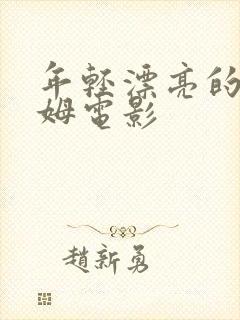 年轻漂亮的
姆電影
趙新勇